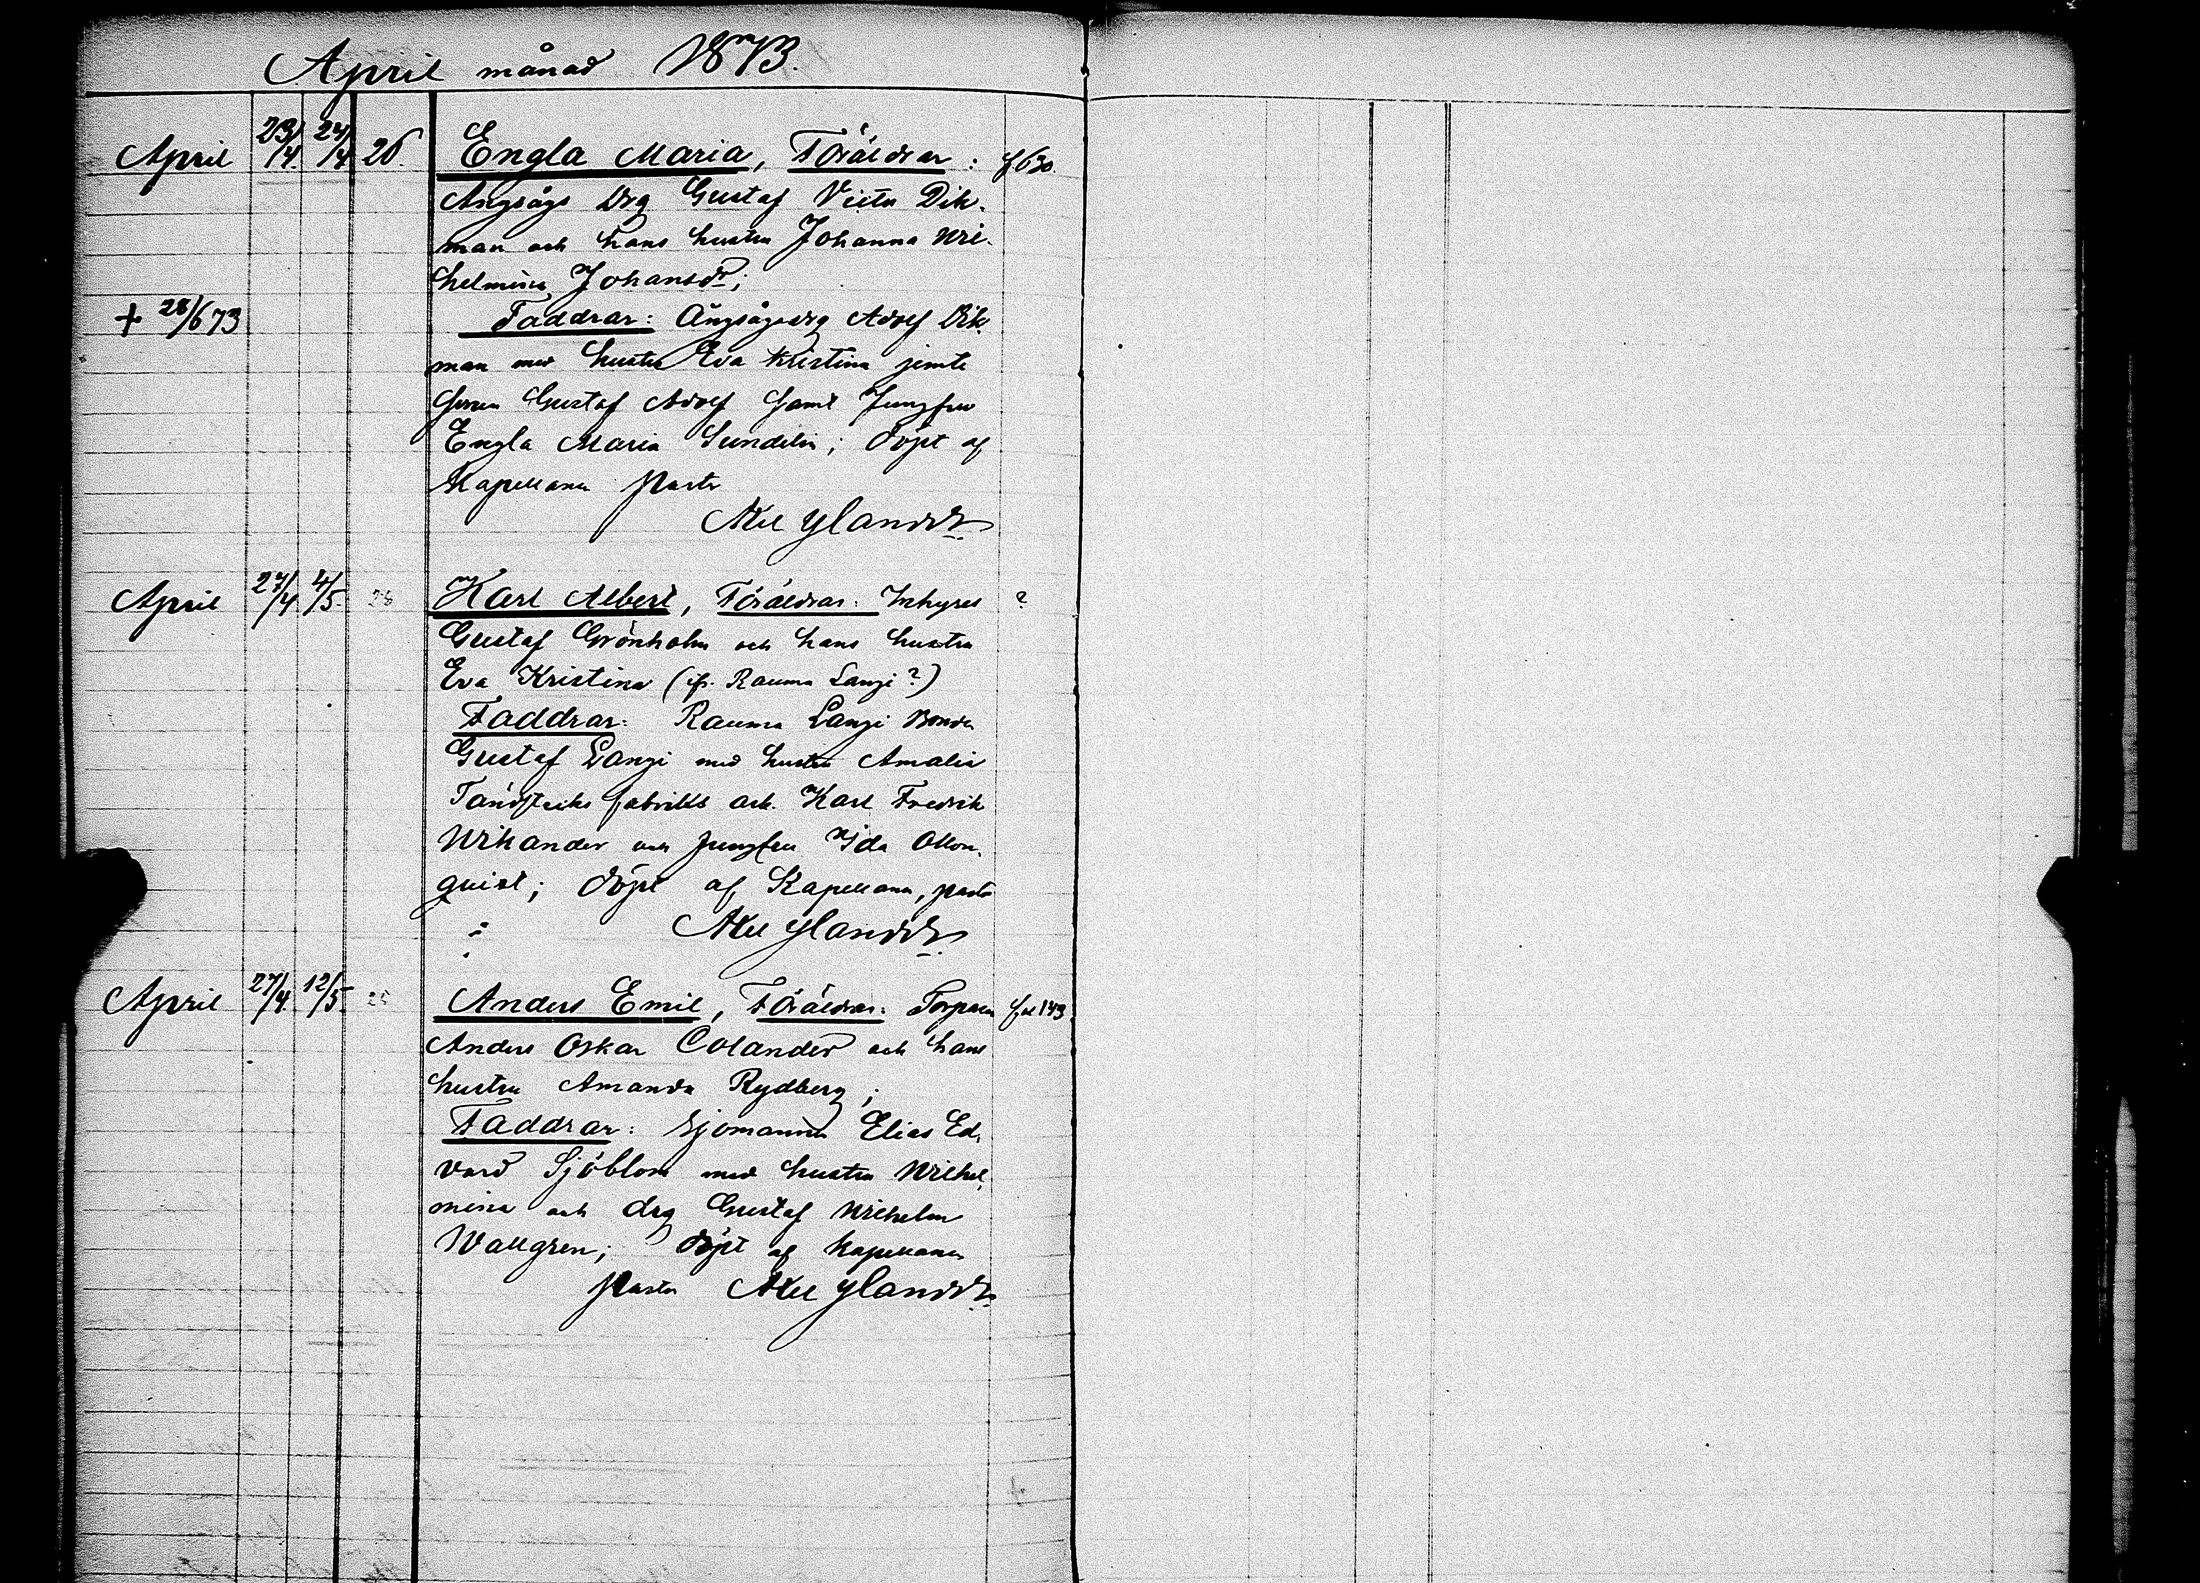 April månad 1873.
April 23/4. 24/4 26. Engla Maria, Föräldrar: f 630.
Ångsågs Drg Gustaf Victor Dik-
man och hans hustru Johanna Wil-
helmina Johansdr;
+ 28/6 73 Faddrar: Ångsågsdrg Adolf Dik-
man med hustru Eva Kristina jemte
Gustaf Adolf samt Jungfru
Engla Maria Sundelin; döpt af
Kapellanen Pastor
April 27/4. 4/5. 28 Karl Albert, Föräldrar: Inhyses ?
Gustaf Grönholm och hans hustru
Eva Kristina (ifr. Rauma Langi?)
Faddrar: Rauma Langi Bonden
Gustaf Langi med hustru Amalia
Tändsticks fabriks arb. Karl Fredrik
Wikander och Jungfru Ida
quist; döpt af Kapellanen, pastor
April 27/4. 12/5. Anders Emil, Föräldrar: Torparen fol 143
Anders Oskar Colander och hans
hustru Amanda Rydberg;
Faddrar: Sjömannen Elias Ed-
vard Sjöblom med hustru Wilhel-
mina och drg Gustaf Wilhelm
Wallgren; döpt af Kapellanen
Pastor